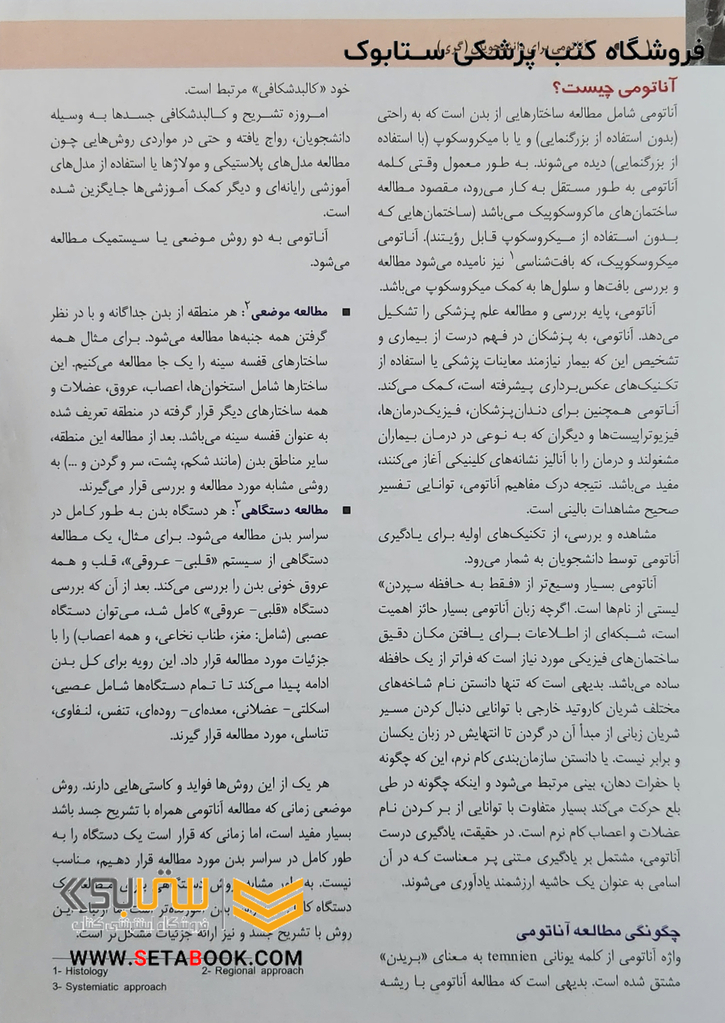 فروشگاه کتب پزشکی ستابوک
آناتومی برای دانشجویان (گری)
آناتومی چیست؟
آناتومی شامل مطالعه ساختارهایی از بدن است که به راحتی
(بدون استفاده از بزرگنمایی) و یا با میکروسکوپ (با استفاده
از بزرگنمایی) دیده می‌شوند. به طور معمول وقتی کلمه
آناتومی به طور مستقل به کار می‌رود، مقصود مطالعه
ساختمان‌های ماکروسکوپیک می‌باشد (ساختمان‌هایی که
بدون استفاده از میکروسکوپ قابل رؤیتند). آناتومی
میکروسکوپیک، که بافت‌شناسی۱ نیز نامیده می‌شود مطالعه
و بررسی بافت‌ها و سلول‌ها به کمک میکروسکوپ می‌باشد.
آناتومی، پایه بررسی و مطالعه علم پزشکی را تشکیل
می‌دهد. آناتومی، به پزشکان در فهم درست از بیماری و
تشخیص این که بیمار نیازمند معاینات پزشکی یا استفاده از
تکنیک‌های عکس‌برداری پیشرفته است، کمک می‌کند.
آناتومی همچنین برای دندان‌پزشکان، فیزیک‌درمان‌ها،
فیزیوتراپیست‌ها و دیگران که به نوعی در درمان بیماران
مشغولند و درمان را با آنالیز نشانه‌های کلینیکی آغاز می‌کنند،
مفید می‌باشد. نتیجه درک مفاهیم آناتومی، توانایی تفسیر
صحیح مشاهدات بالینی است.
مشاهده و بررسی، از تکنیک‌های اولیه برای یادگیری
آناتومی توسط دانشجویان به شمار می‌رود.
آناتومی بسیار وسیع‌تر از «فقط به حافظه سپردن»
لیستی از نام‌ها است. اگرچه زبان آناتومی بسیار حائز اهمیت
است، شبکه‌ای از اطلاعات برای یافتن مکان دقیق
ساختمان‌های فیزیکی مورد نیاز است که فراتر از یک حافظه
ساده می‌باشد. بدیهی است که تنها دانستن نام شاخه‌های
مختلف شریان کاروتید خارجی با توانایی دنبال کردن مسیر
شریان زبانی از مبدأ آن در گردن تا انتهایش در زبان یکسان
و برابر نیست. یا دانستن سازمان‌بندی کام نرم، این که چگونه
با حفرات دهان، بینی مرتبط می‌شود و اینکه چگونه در طی
بلع حرکت می‌کند بسیار متفاوت با توانایی از بر کردن نام
عضلات و اعصاب کام نرم است. در حقیقت، یادگیری درست
آناتومی، مشتمل بر یادگیری متنی پر معناست که در آن
اسامی به عنوان یک حاشیه ارزشمند یادآوری می‌شوند.
چگونگی مطالعه آناتومی
واژه آناتومی از کلمه یونانی temnien به معنای «بریدن»
مشتق شده است. بدیهی است که مطالعه آناتومی با ریشه
خود «کالبدشکافی» مرتبط است.
امروزه تشریح و کالبدشکافی جسدها به وسیله
دانشجویان، رواج یافته و حتی در مواردی روش‌هایی چون
مطالعه مدل‌های پلاستیکی و مولاژها یا استفاده از مدل‌های
آموزشی رایانه‌ای و دیگر کمک آموزشی‌ها جایگزین شده
است.
آناتومی به دو روش موضعی یا سیستمیک مطالعه
می‌شود.
■ مطالعه موضعی۲: هر منطقه از بدن جداگانه و با در نظر
گرفتن همه جنبه‌ها مطالعه می‌شود. برای مثال همه
ساختارهای قفسه سینه را یک جا مطالعه می‌کنیم. این
ساختارها شامل استخوان‌ها، اعصاب، عروق، عضلات و
همه ساختارهای دیگر قرار گرفته در منطقه تعریف شده
به عنوان قفسه سینه می‌باشد. بعد از مطالعه این منطقه،
سایر مناطق بدن (مانند شکم، پشت، سر و گردن و ...) به
روشی مشابه مورد مطالعه و بررسی قرار می‌گیرند.
■ مطالعه دستگاهی۳: هر دستگاه بدن به طور کامل در
سراسر بدن مطالعه می‌شود. برای مثال، یک مطالعه
دستگاهی از سیستم «قلبی- عروقی»، قلب و همه
عروق خونی بدن را بررسی می‌کند. بعد از آن که بررسی
دستگاه «قلبی- عروقی» کامل شد، می‌توان دستگاه
عصبی (شامل: مغز، طناب نخاعی، و همه اعصاب) را با
جزئیات مورد مطالعه قرار داد. این رویه برای کل بدن
ادامه پیدا می‌کند تا تمام دستگاه‌ها شامل عصبی،
اسکلتی- عضلانی، معده‌ای- روده‌ای، تنفس، لنفاوی،
تناسلی، مورد مطالعه قرار گیرند.
هر یک از این روش‌ها فواید و کاستی‌هایی دارند. روش
موضعی زمانی که مطالعه آناتومی همراه با تشریح جسد باشد
بسیار مفید است، اما زمانی که قرار است یک دستگاه را به
طور کامل در سراسر بدن مورد مطالعه قرار دهیم، مناسب
نیست. به طور مشابه روش دستگاهی برای مطالعه یک
دستگاه کامل بدن است، اما ارتباط این
روش با تشریح جسد و نیز ارائه جزئیات مشکل‌تر است.
ستابوک
فروشگاه اینترنتی کتاب
WWW.SETABOOK.COM
1- Histology 2- Regional approach
3- Systemiatic approach